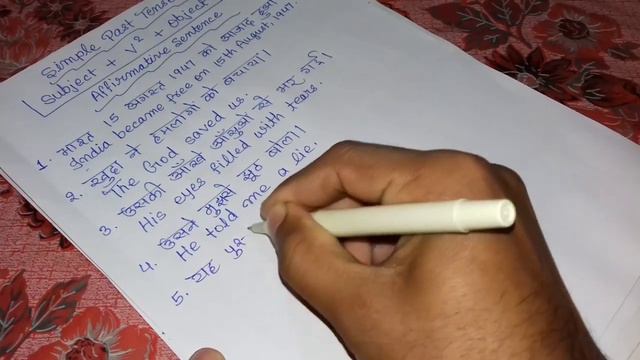 Simple Past Tense
Subject + V² + Object
Affirmative Sentence
1. भारत 15 अगस्त 1947 को आजाद हुआ
India became free on 15th August, 1947.
2. खुदा ने हमलोगों को बचाया।
The God saved us.
3. उसकी आँखें आँसुओं से भर गई।
His eyes filled with tears.
4. उसने मुझसे झूठ बोला।
He told me a lie.
5. यह